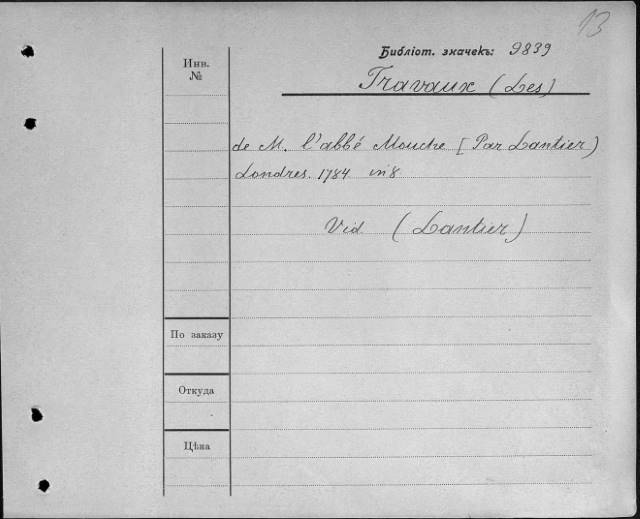 13
Библіот. значекъ: 9839
Инв.
№
Travaux (Les)
de M. l'abbé Mouche [Par Lantier)
Londres. 1784 in 8
Vid (Lantier)
По заказу
Откуда
Цѣна